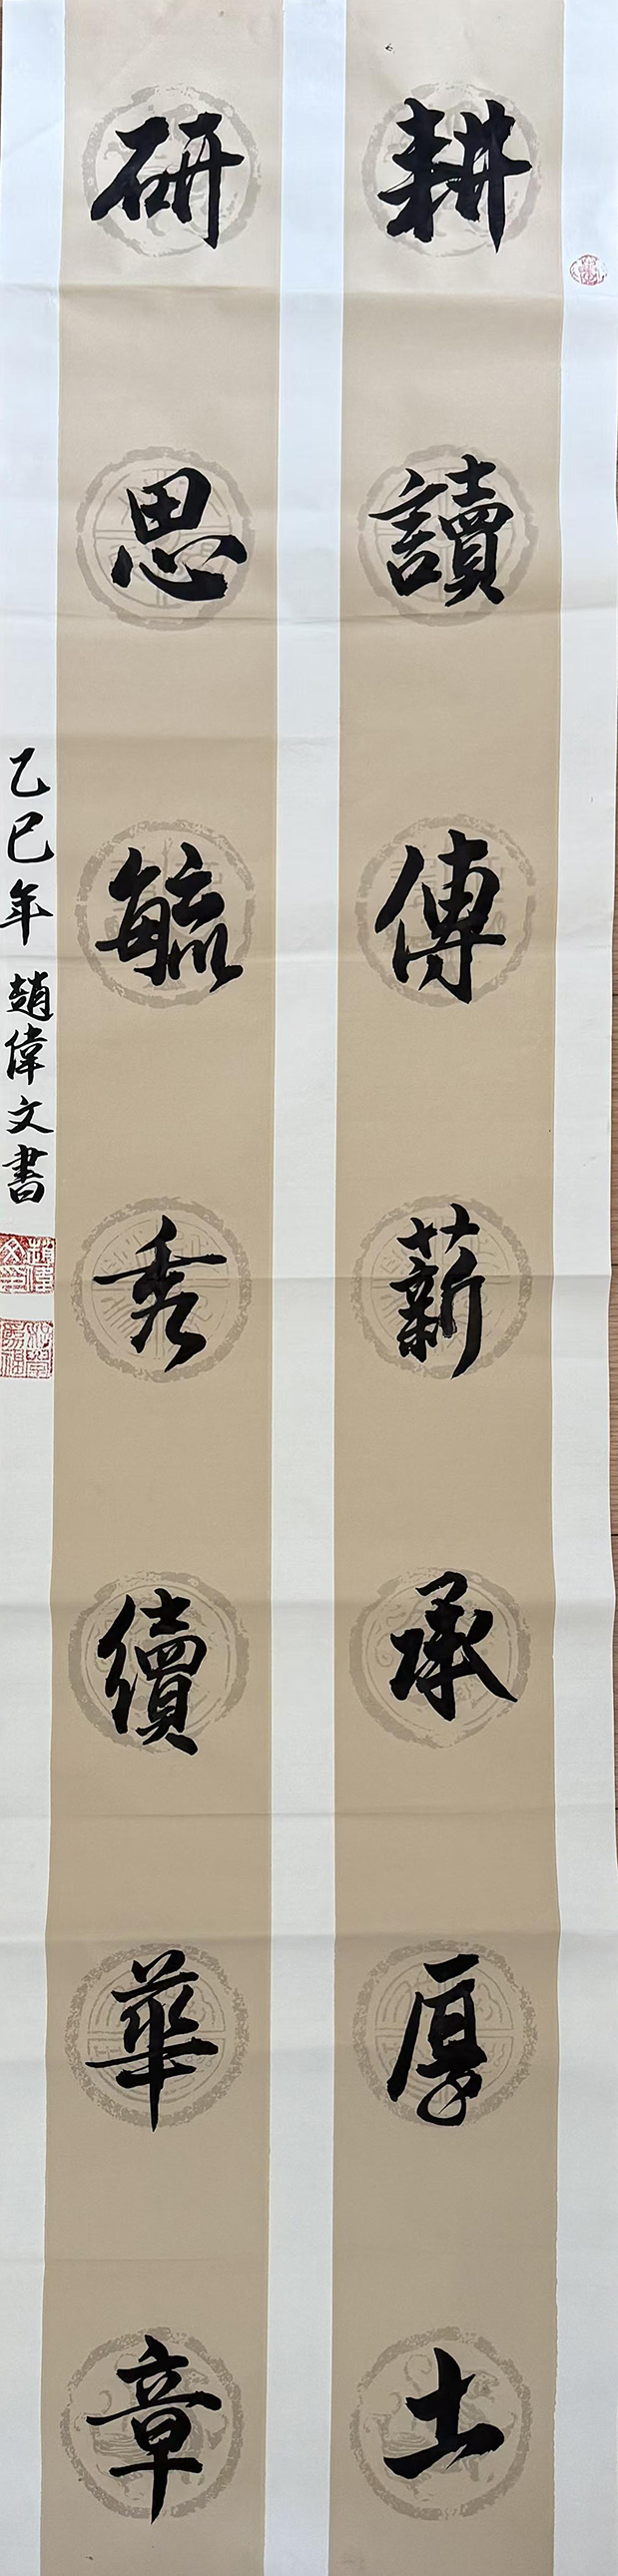 耕讀傳薪承厚土
研思毓秀續華章
乙巳年 趙偉文書